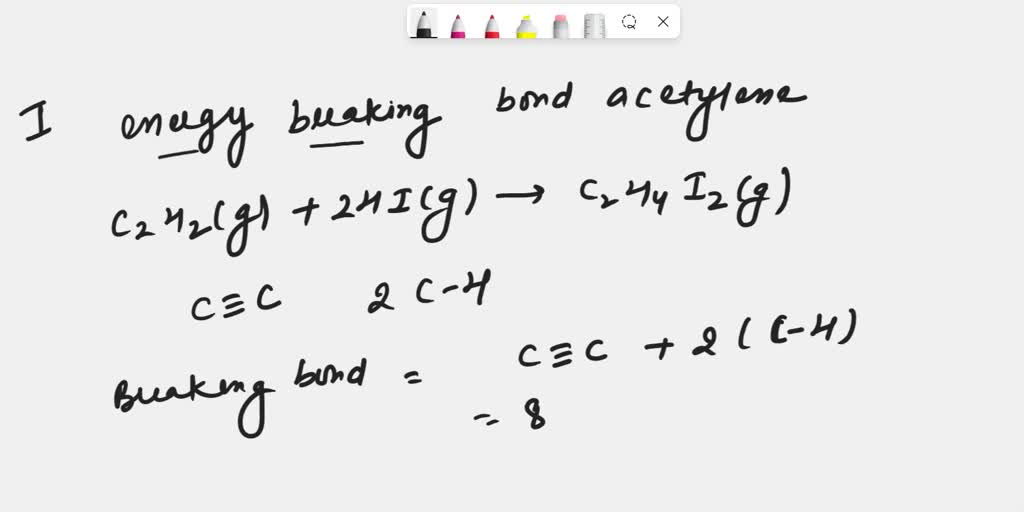 I energy breaking bond acetylene
C₂H₂(g) + 2HI(g) → C₂H₄I₂(g)
C≡C 2 C-H
Breaking bond = C≡C + 2(C-H)
= 8